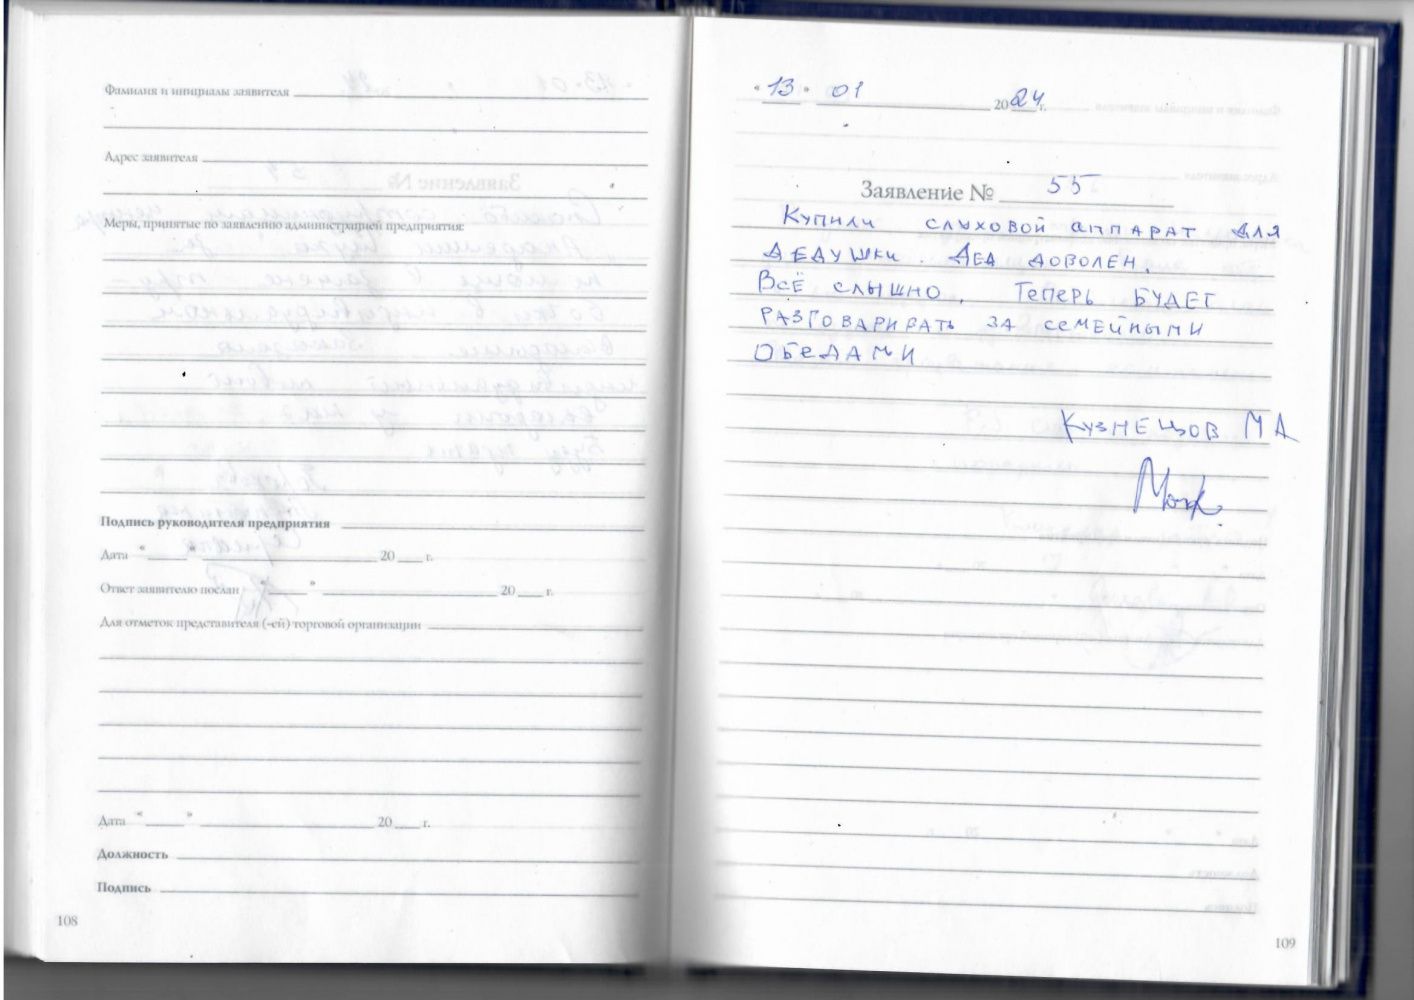 Фамилия и инициалы заявителя
Адрес заявителя
Меры, принятые по заявлению администрацией предприятия:
Подпись руководителя предприятия
Дата " " 20 г.
Ответ заявителю послан " " 20 г.
Для отметок представителя (-ей) торговой организации
Дата " " 20 г.
Должность
Подпись
108
"13" 01 2024 г.
Заявление № 55
Купили слуховой аппарат для
дедушки. Дед доволен.
Всё слышно. Теперь будет
разговаривать за семейными
обедами
Кузнецов МА
109